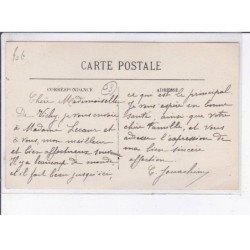 CARTE POSTALE
CORRESPONDANCE
ADRESSE
Chère Mademoiselle
De Vichy je vous envoie
à Madame Lecour et
à vous, mon meilleur
et bien affectueux
Il y a beaucoup de monde
et il fait bien jusqu'ici
ce qui est le principal
Je vous espère en bonne
santé, ainsi que votre
chère famille, et vous
adresse l'expression de
ma bien sincère
affection